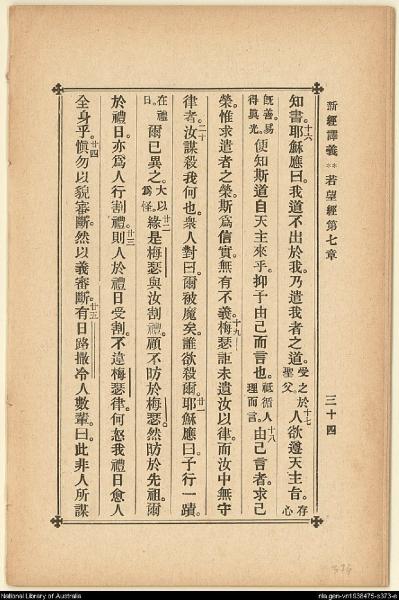 新經譯義 **若望經第七章 三十四
知書。十六耶穌應曰。我道不出於我。乃遣我者之道。受之於聖父。十七人欲遵天主旨。存心
既善。易得眞光。便知斯道自天主來乎。抑于由己而言也。祗循人理而言。十八由己言者。求己
榮。惟求遣者之榮。斯爲信實。無有不義。十九梅瑟詎未遺汝以律。而汝中無守
律者。二十汝謀殺我何也。衆人對曰。爾被魔矣。誰欲殺爾。廿一耶穌應曰。予行一蹟。
在禮日。爾已異之。大以爲怪。廿二緣是梅瑟與汝割禮。顧不昉於梅瑟。然昉於先祖。爾
於禮日亦爲人行割禮。廿三則人於禮日受割。不違梅瑟律。何怒我禮日愈人
全身乎。廿四愼勿以貌審斷。然以義審斷。廿五有日路撒冷人數輩。曰。此非人所謀
National Library of Australia
nla.gen-vn1938475-s373-e